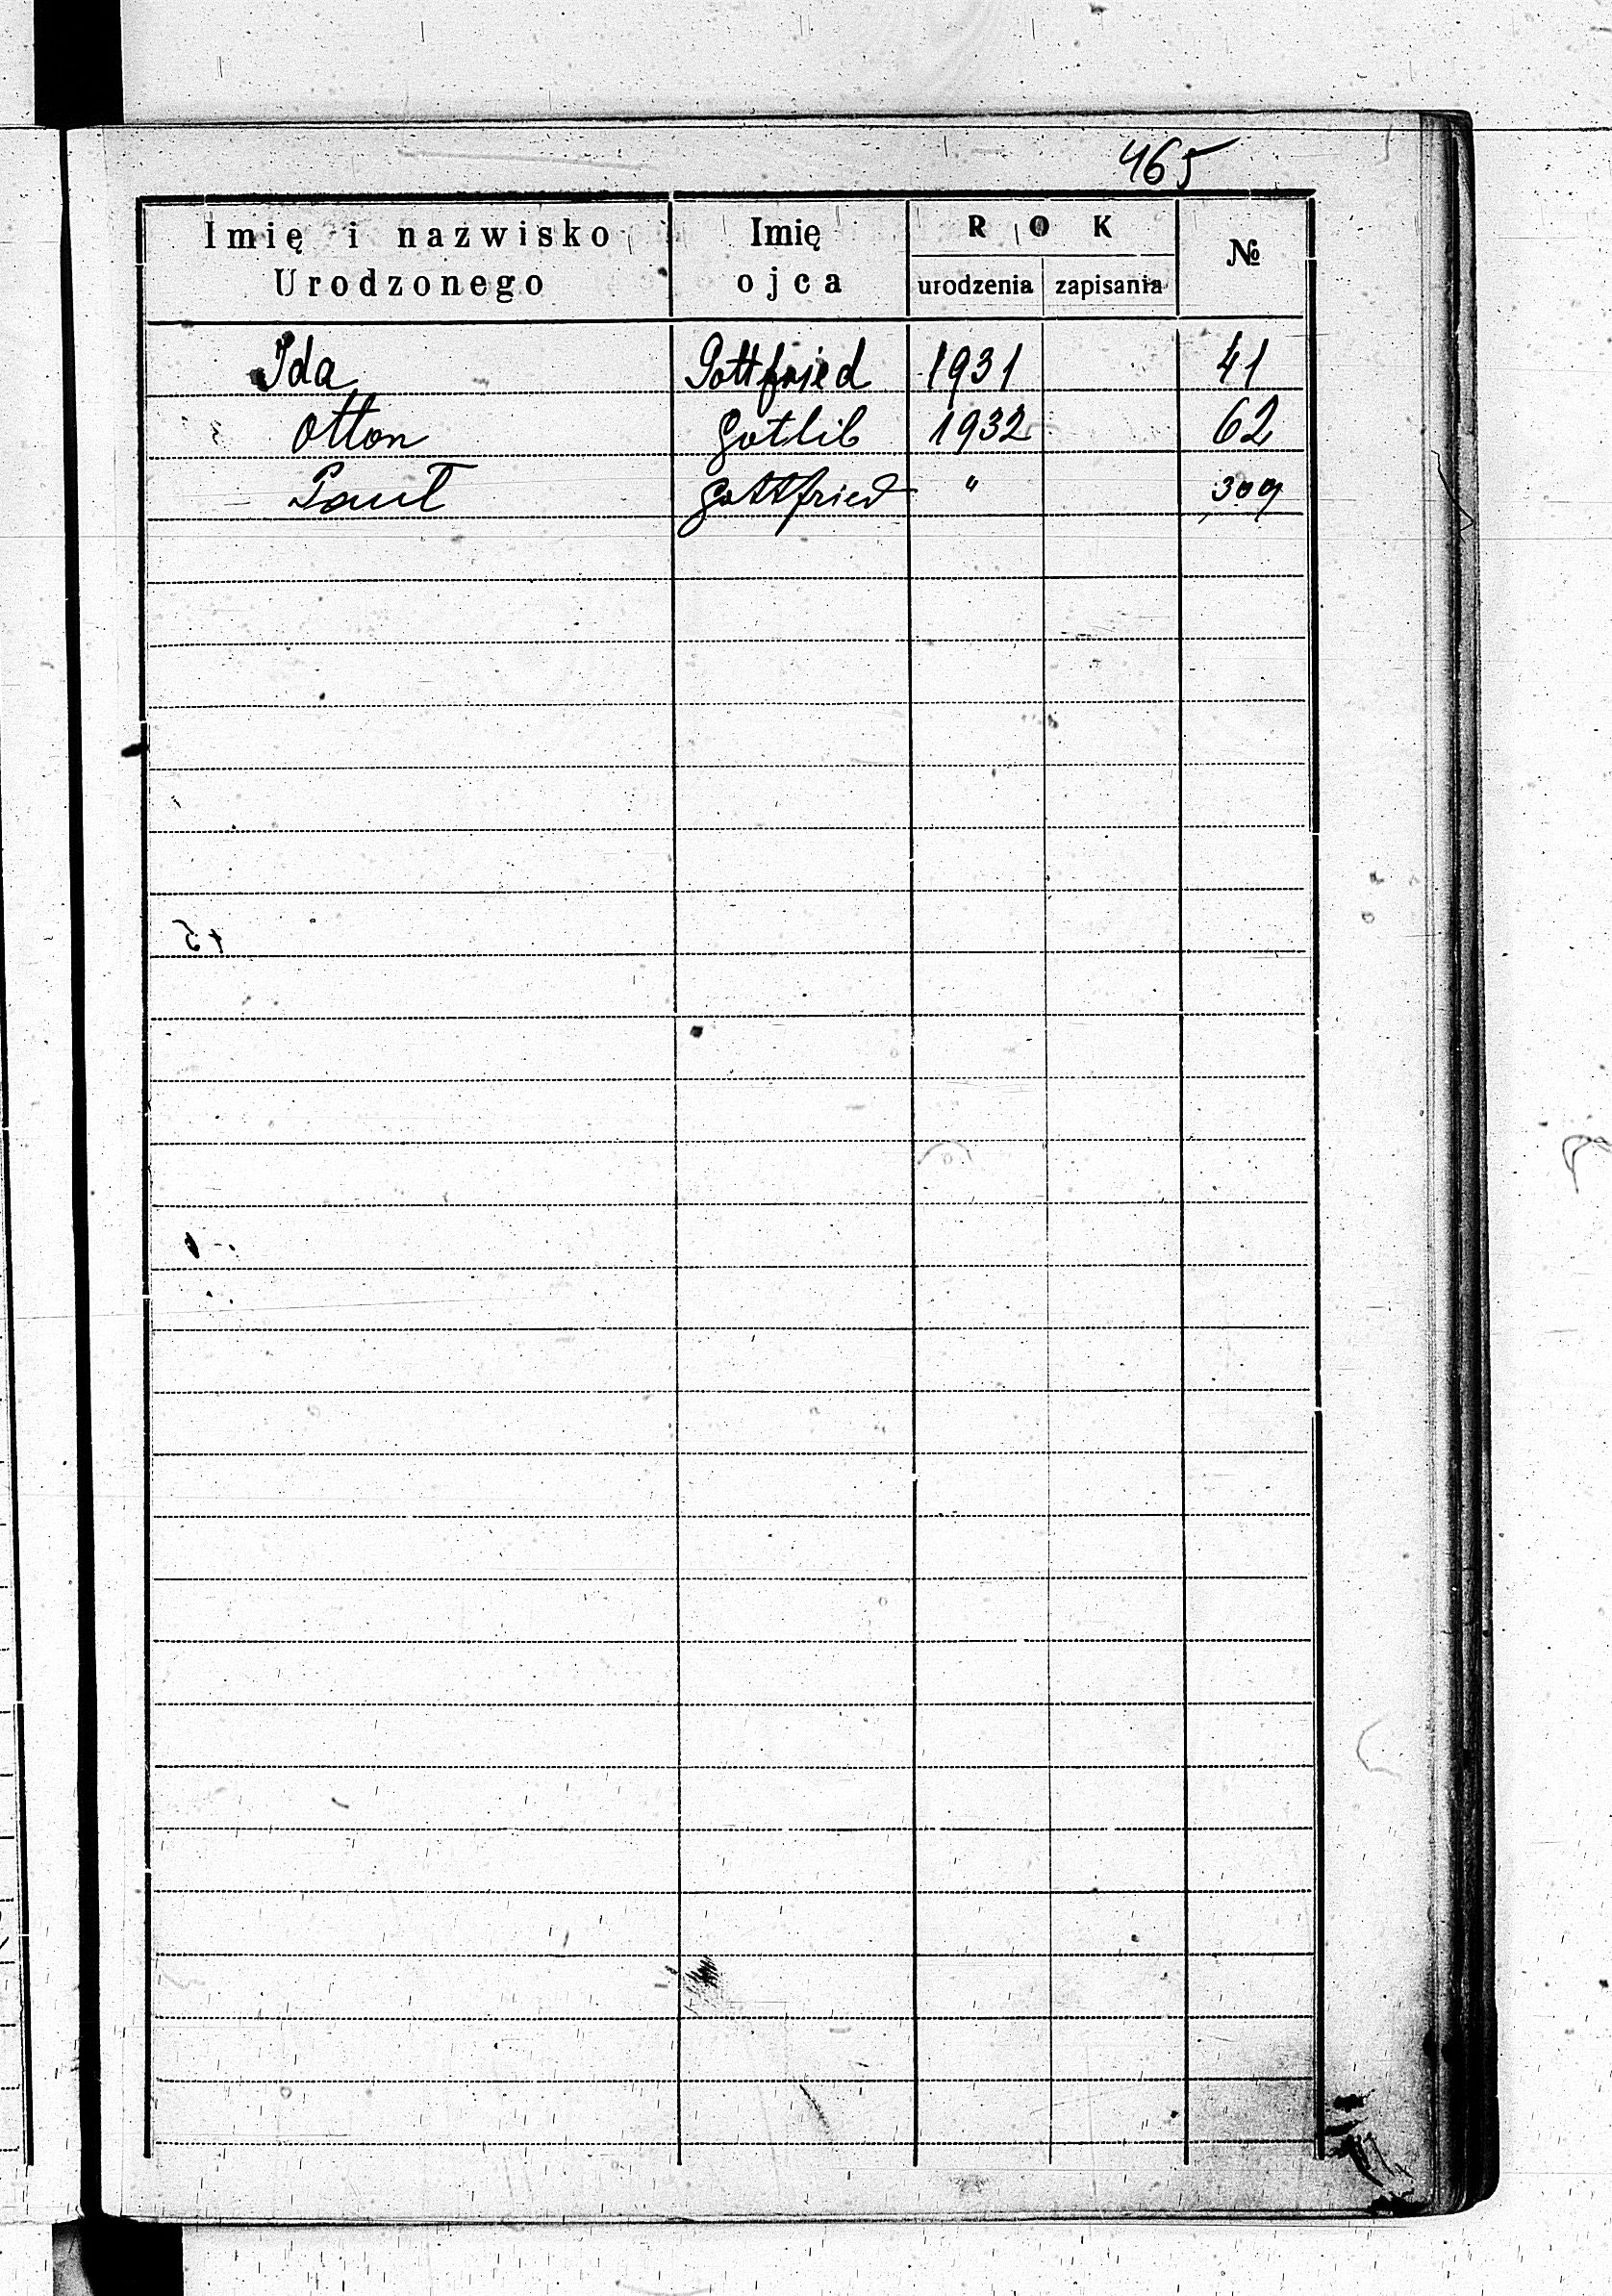 465
Imię i nazwisko Urodzonego Imię ojca ROK urodzenia zapisania №
Ida Gottfried 1931 41
Otton Gotlib 1932 62
Paul Gottfried " 309